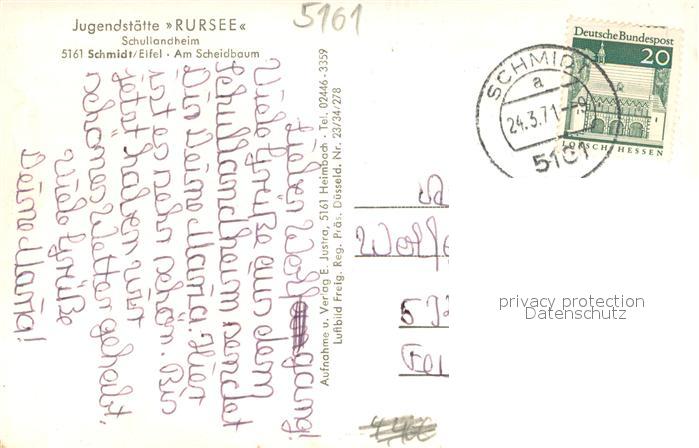 Jugendstätte »RURSEE«
Schullandheim
5161 Schmidt/Eifel · Am Scheidbaum
5161
Lieber Wolfgang!
Viele Grüße aus dem
Schullandheim sendet
Dir Deine Maria. Hier
ist es sehr schön. Bis
jetzt haben wir
schönes Wetter gehabt.
Viele Grüße
Deine Maria!
Aufnahme u. Verlag E. Justra, 5161 Heimbach · Tel. 02446-3359
Luftbild Freig. Reg. Präs. Düsseld. Nr. 23/34/278
Deutsche Bundespost
20
LORSCH/HESSEN
SCHMIDT
a
24.3.71
5161
Wolf
privacy protection
Datenschutz